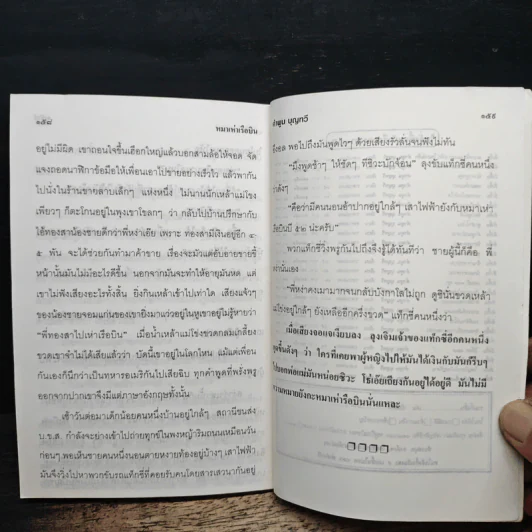 ๑๕๘
หมาเห่าเรือบิน
อยู่ไม่มีผิด เขาถอนใจขึ้นเฮือกใหญ่แล้วบอกสามล้อให้จอด จัด
แจงถอดนาฬิกาข้อมือให้เพื่อนเอาไปขายอย่างเร็วไว แล้วพากัน
ไปนั่งในร้านขายลาบเล็กๆ แห่งหนึ่ง ไม่นานนักเหล้าแม่โขง
เพียวๆ ก็ตะโกนอยู่ในพุงเขาโขลกๆ ว่า กลับไปบ้านปรึกษากับ
ไอ้ทองสาน้องชายดีกว่าพี่หง่าเอ๊ย เพราะ ทองสามีเงินอยู่อีก ๔-
๕ พัน จะได้ช่วยกันทำมาค้าขาย เรื่องจะมัวแต่อับอายขายขี้
หน้านั้นมันไม่มีอะไรดีขึ้น นอกจากมันจะทำให้อายุมันหด แต่
เขาไม่ฟังเสียงอะไรทั้งสิ้น ยิ่งกินเหล้าเข้าไปเท่าใด เสียงแจ้วๆ
ของน้องชายจอมแก่นของเขายิ่งมาแว่วอยู่ในหูเขาอยู่ไม่รู้หายว่า
"พี่ทองสาไปเห่าเรือบิน" เมื่อน้ำเหล้าแม่โขงขวดกลมเกลี้ยง
ขวดเขาจำไม่ได้เสียแล้วว่า บัดนี้เขาอยู่ในโลกไหน แม้แต่เพื่อน
กันเองก็นึกว่าเป็นทหารอเมริกันไปเสียฉิบ ทุกคำพูดที่พรั่งพรู
ออกจากปากเขาจึงมีแต่ภาษาอังกฤษทั้งนั้น
เช้าวันต่อมาเด็กน้อยคนหนึ่งบ้านอยู่ใกล้ๆ สถานีขนส่ง
บ.ข.ส. กำลังจะย่างเข้าไปถ่ายทุกข์ในพงหญ้าริมถนนเหมือนวัน
ก่อนๆ พอเห็นชายคนหนึ่งนอนตายหงายท้องอยู่ข้างๆ เสาไฟฟ้า
มันจึงวิ่งไปหาพวกขับรถแท็กซี่ที่คอยรับคนโดยสารเสวนากันอยู่
คำพูน บุญทวี
๑๕๙
พอไปถึงมันพูดไวๆ ด้วยเสียงรัวลิ้นจนฟังไม่ทัน
"มึงพูดช้าๆ ให้ชัดๆ ทีซิวะนักจ้อน" ลุงขับแท็กซี่คนหนึ่ง
"คือว่ามีคนนอนอ้าปากอยู่ใกล้ๆ เสาไฟฟ้ายังกับหมาเห่า
เรือบินบี ๕๒ น่ะครับ"
พวกแท็กซี่วิ่งพรูกันไปถึงจึงรู้ได้ทันทีว่า ชายผู้นี้ก็คือ
นั่นเอง
"พี่หง่าคงเมามากจนกลับบังกาโลไม่ถูก ดูซินั่นขวดเหล้า
แม่โขงอยู่ใกล้ๆ ยังเหลืออีกครึ่งขวด" แท็กซี่คนหนึ่งว่า
เมื่อเสียงจอแจเงียบลง ลุงเจิมเจ้าของแท็กซี่อีกคนหนึ่ง
พูดขึ้นดังๆ ว่า ใครที่เคยพาผู้หญิงไปให้มันได้เงินกับมันก็รีบๆ
ไปบอกพ่อแม่มันหน่อยซิวะ ไอ้เฮียเถียงกันอยู่ได้อยู่ดี มันไม่มี
ความหมายยังกะหมาเห่าเรือบินนั่นแหละ